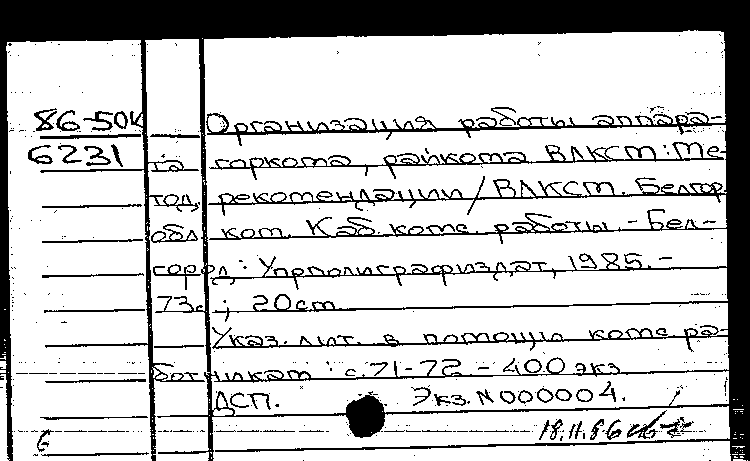 86-50к Организация работы аппара-
6231 та горкома, райкома ВЛКСМ: Ме-
тод. рекомендации / ВЛКСМ. Белгор.
обл. ком. Каб. комс. работы. - Бел-
город: Упрполиграфиздат, 1985. -
73с.; 20см.
Указ. лит. в помощь комс. ра-
ботникам: с. 71-72 - 400 экз.
ДСП. Экз. N 000004.
6 18.11.86